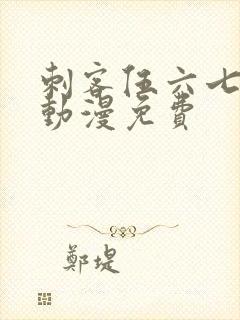 刺客伍六七
動漫免費
鄭堤